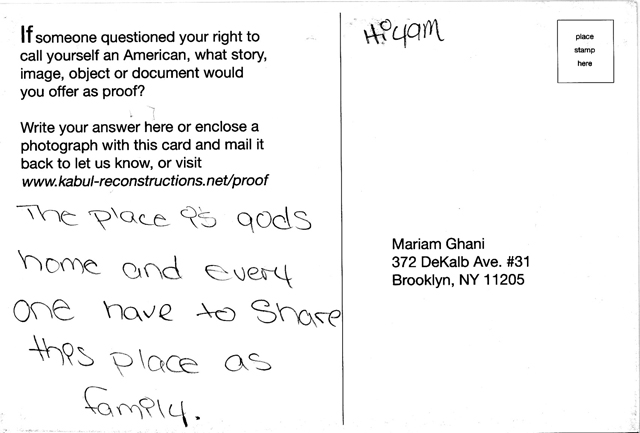 If someone questioned your right to
call yourself an American, what story,
image, object or document would
you offer as proof?
Write your answer here or enclose a
photograph with this card and mail it
back to let us know, or visit
www.kabul-reconstructions.net/proof
The place is gods
home and every
one have to Share
this place as
family.
Hiyam
place
stamp
here
Mariam Ghani
372 DeKalb Ave. #31
Brooklyn, NY 11205